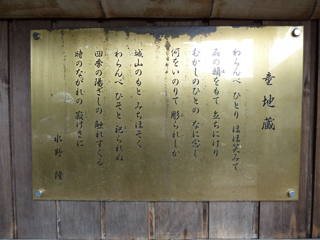 童地蔵
わらんべ ひとり ほほ笑みて
石の頭をもて 立ちにけり
むかしのひとの なに念じ
何をいのりて 彫られしか
城山のもと みちほそく
わらんべ ひそと 祀られぬ
四季の陽ざしの 触れすぐる
時のながれの 寂けさに
水野 隆